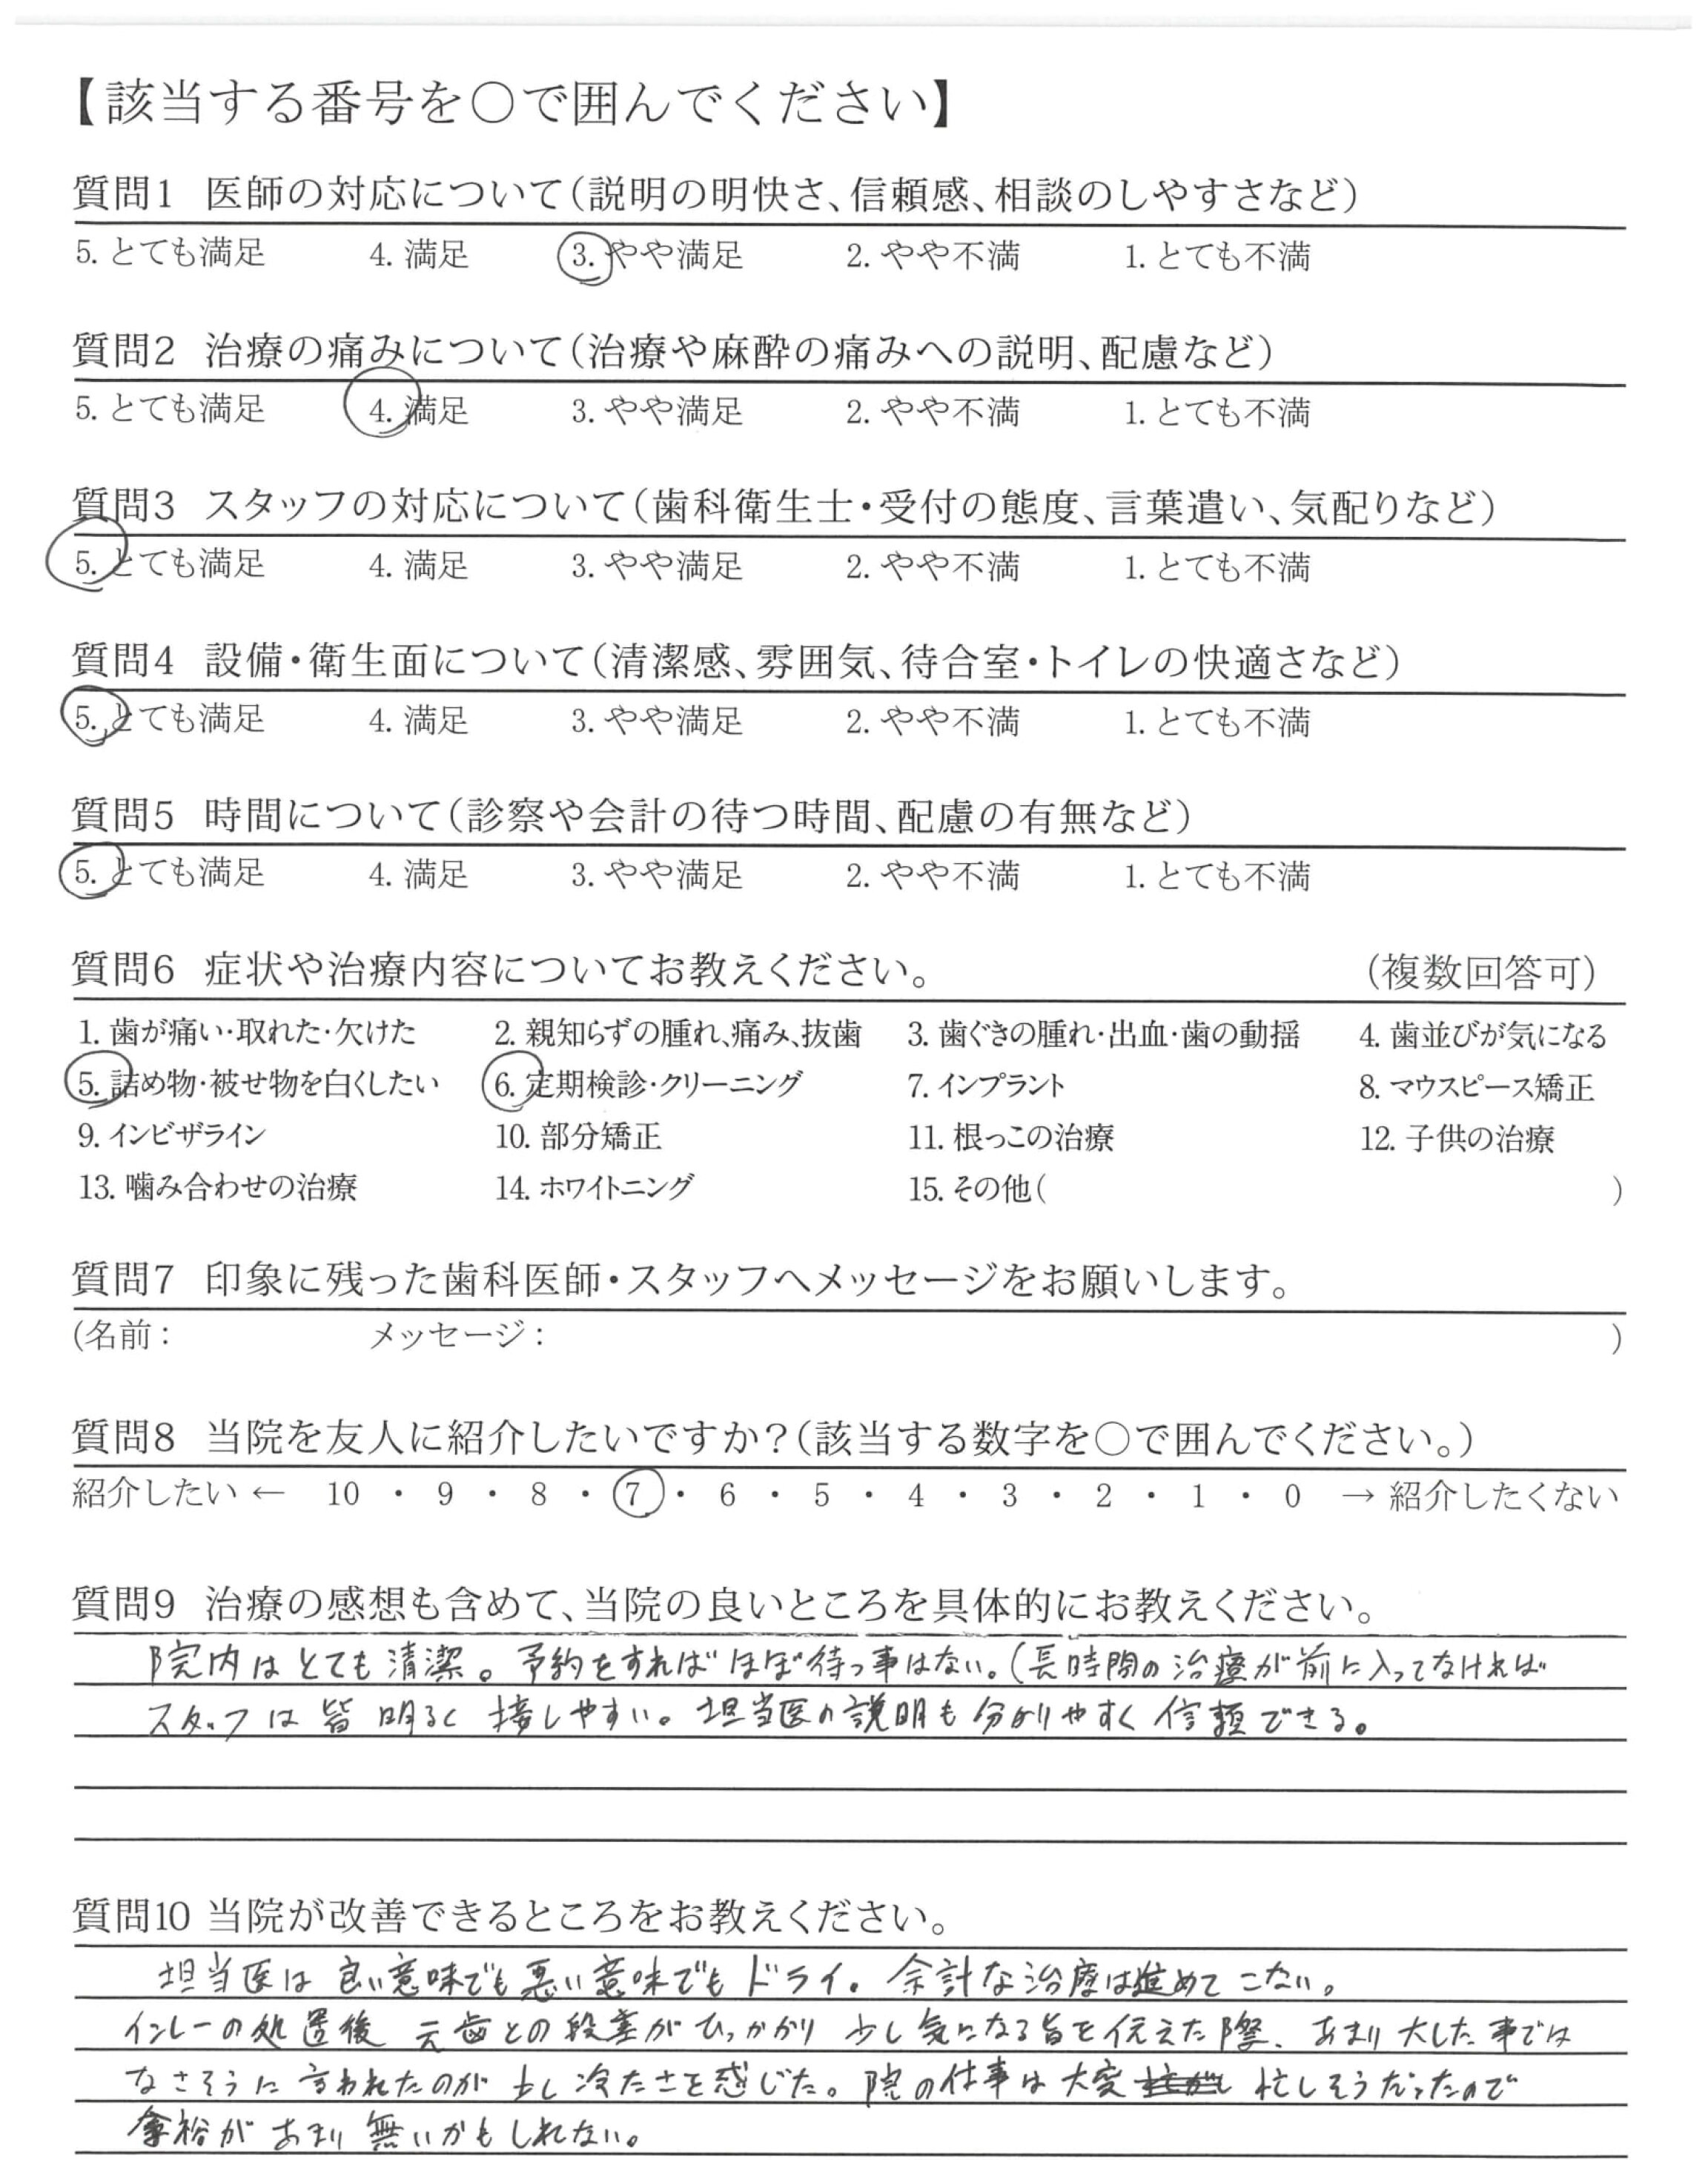 【該当する番号を○で囲んでください】
質問1 医師の対応について(説明の明快さ、信頼感、相談のしやすさなど)
5. とても満足 4. 満足 3. やや満足 2. やや不満 1. とても不満
質問2 治療の痛みについて(治療や麻酔の痛みへの説明、配慮など)
5. とても満足 4. 満足 3. やや満足 2. やや不満 1. とても不満
質問3 スタッフの対応について(歯科衛生士・受付の態度、言葉遣い、気配りなど)
5. とても満足 4. 満足 3. やや満足 2. やや不満 1. とても不満
質問4 設備・衛生面について(清潔感、雰囲気、待合室・トイレの快適さなど)
5. とても満足 4. 満足 3. やや満足 2. やや不満 1. とても不満
質問5 時間について(診察や会計の待つ時間、配慮の有無など)
5. とても満足 4. 満足 3. やや満足 2. やや不満 1. とても不満
質問6 症状や治療内容についてお教えください。 (複数回答可)
1. 歯が痛い・取れた・欠けた 2. 親知らずの腫れ、痛み、抜歯 3. 歯ぐきの腫れ・出血・歯の動揺 4. 歯並びが気になる
5. 詰め物・被せ物を白くしたい 6. 定期検診・クリーニング 7. インプラント 8. マウスピース矯正
9. インビザライン 10. 部分矯正 11. 根っこの治療 12. 子供の治療
13. 噛み合わせの治療 14. ホワイトニング 15. その他( )
質問7 印象に残った歯科医師・スタッフへメッセージをお願いします。
(名前: メッセージ: )
質問8 当院を友人に紹介したいですか?(該当する数字を○で囲んでください。)
紹介したい ← 10 ・ 9 ・ 8 ・ 7 ・ 6 ・ 5 ・ 4 ・ 3 ・ 2 ・ 1 ・ 0 → 紹介したくない
質問9 治療の感想も含めて、当院の良いところを具体的にお教えください。
院内はとても清潔。予約をすればほぼ待つ事はない。(長時間の治療が前に入ってなければ
スタッフは皆明るく接しやすい。担当医の説明も分かりやすく信頼できる。
質問10 当院が改善できるところをお教えください。
担当医は良い意味でも悪い意味でもドライ。余計な治療は進めてこない。
インレーの処置後元歯との段差がひっかかり少し気になる旨を伝えた際、あまり大した事では
なさそうに言われたのが少し冷たさを感じた。院の仕事は大変忙しそうだったので
余裕があまり無いかもしれない。